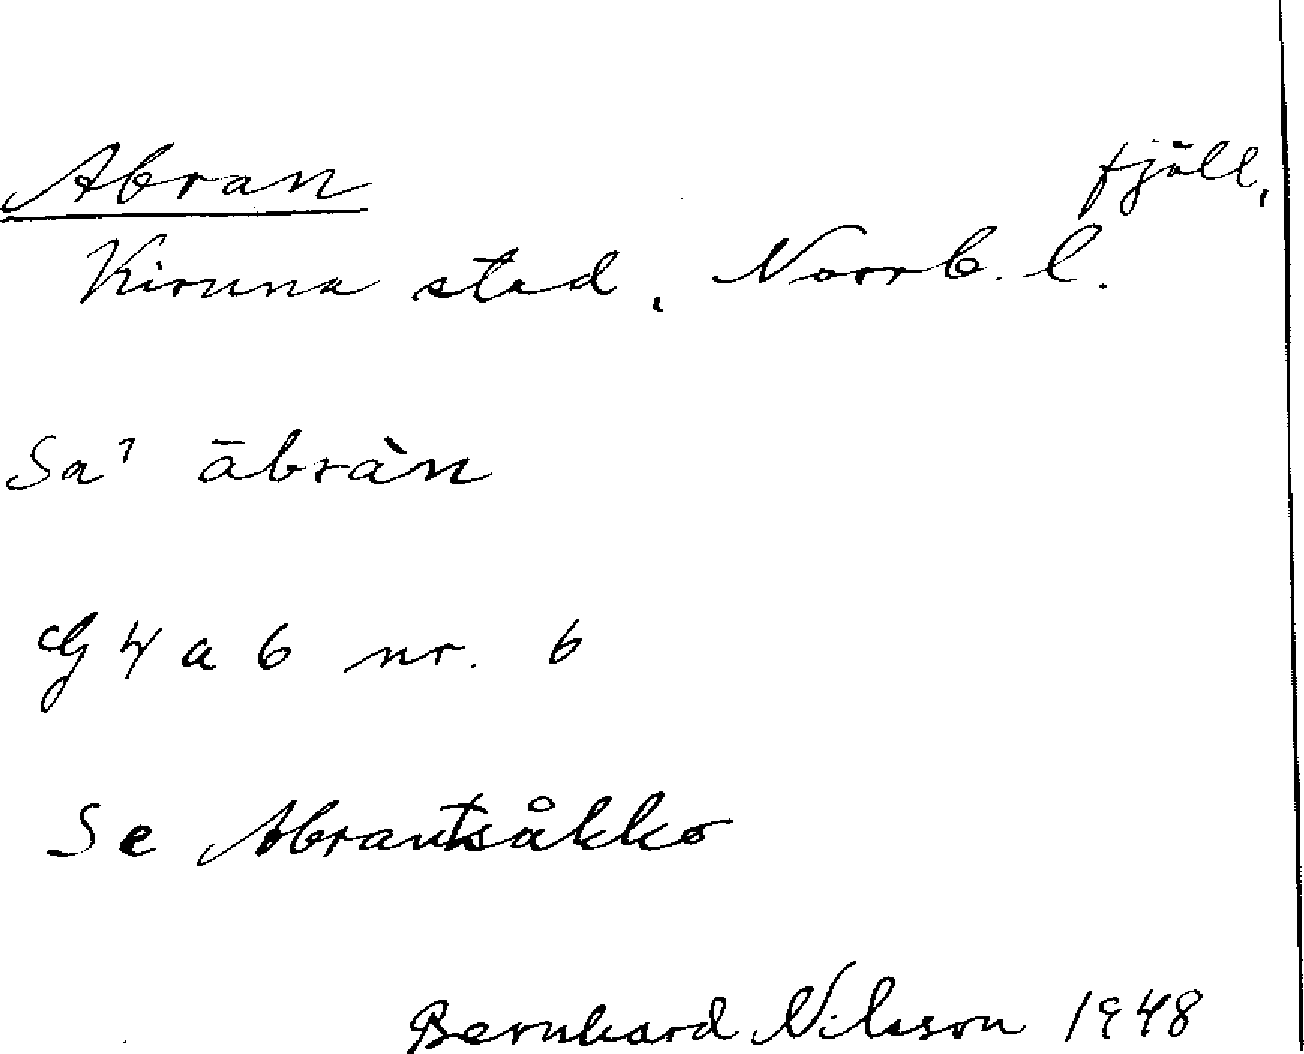 Abran fjäll,
Kiruna stad, Norrb. l.
Sa⁷ ābràn
G 4 a 6 nr. 6
Se Abrantsåkko
Bernhard Nilsson 1948